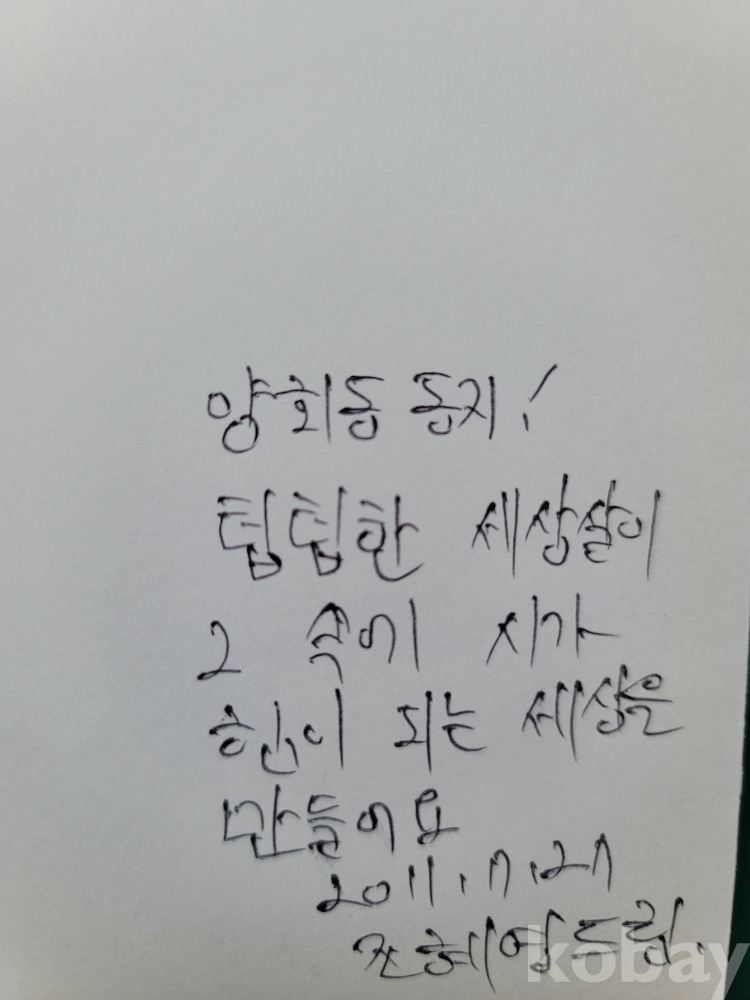 양회동 동지!
팁팁한 세상살이
그 속에 시가
힘이 되는 세상을
만들어요
2011.7.27
조혜영 드림.
kobay